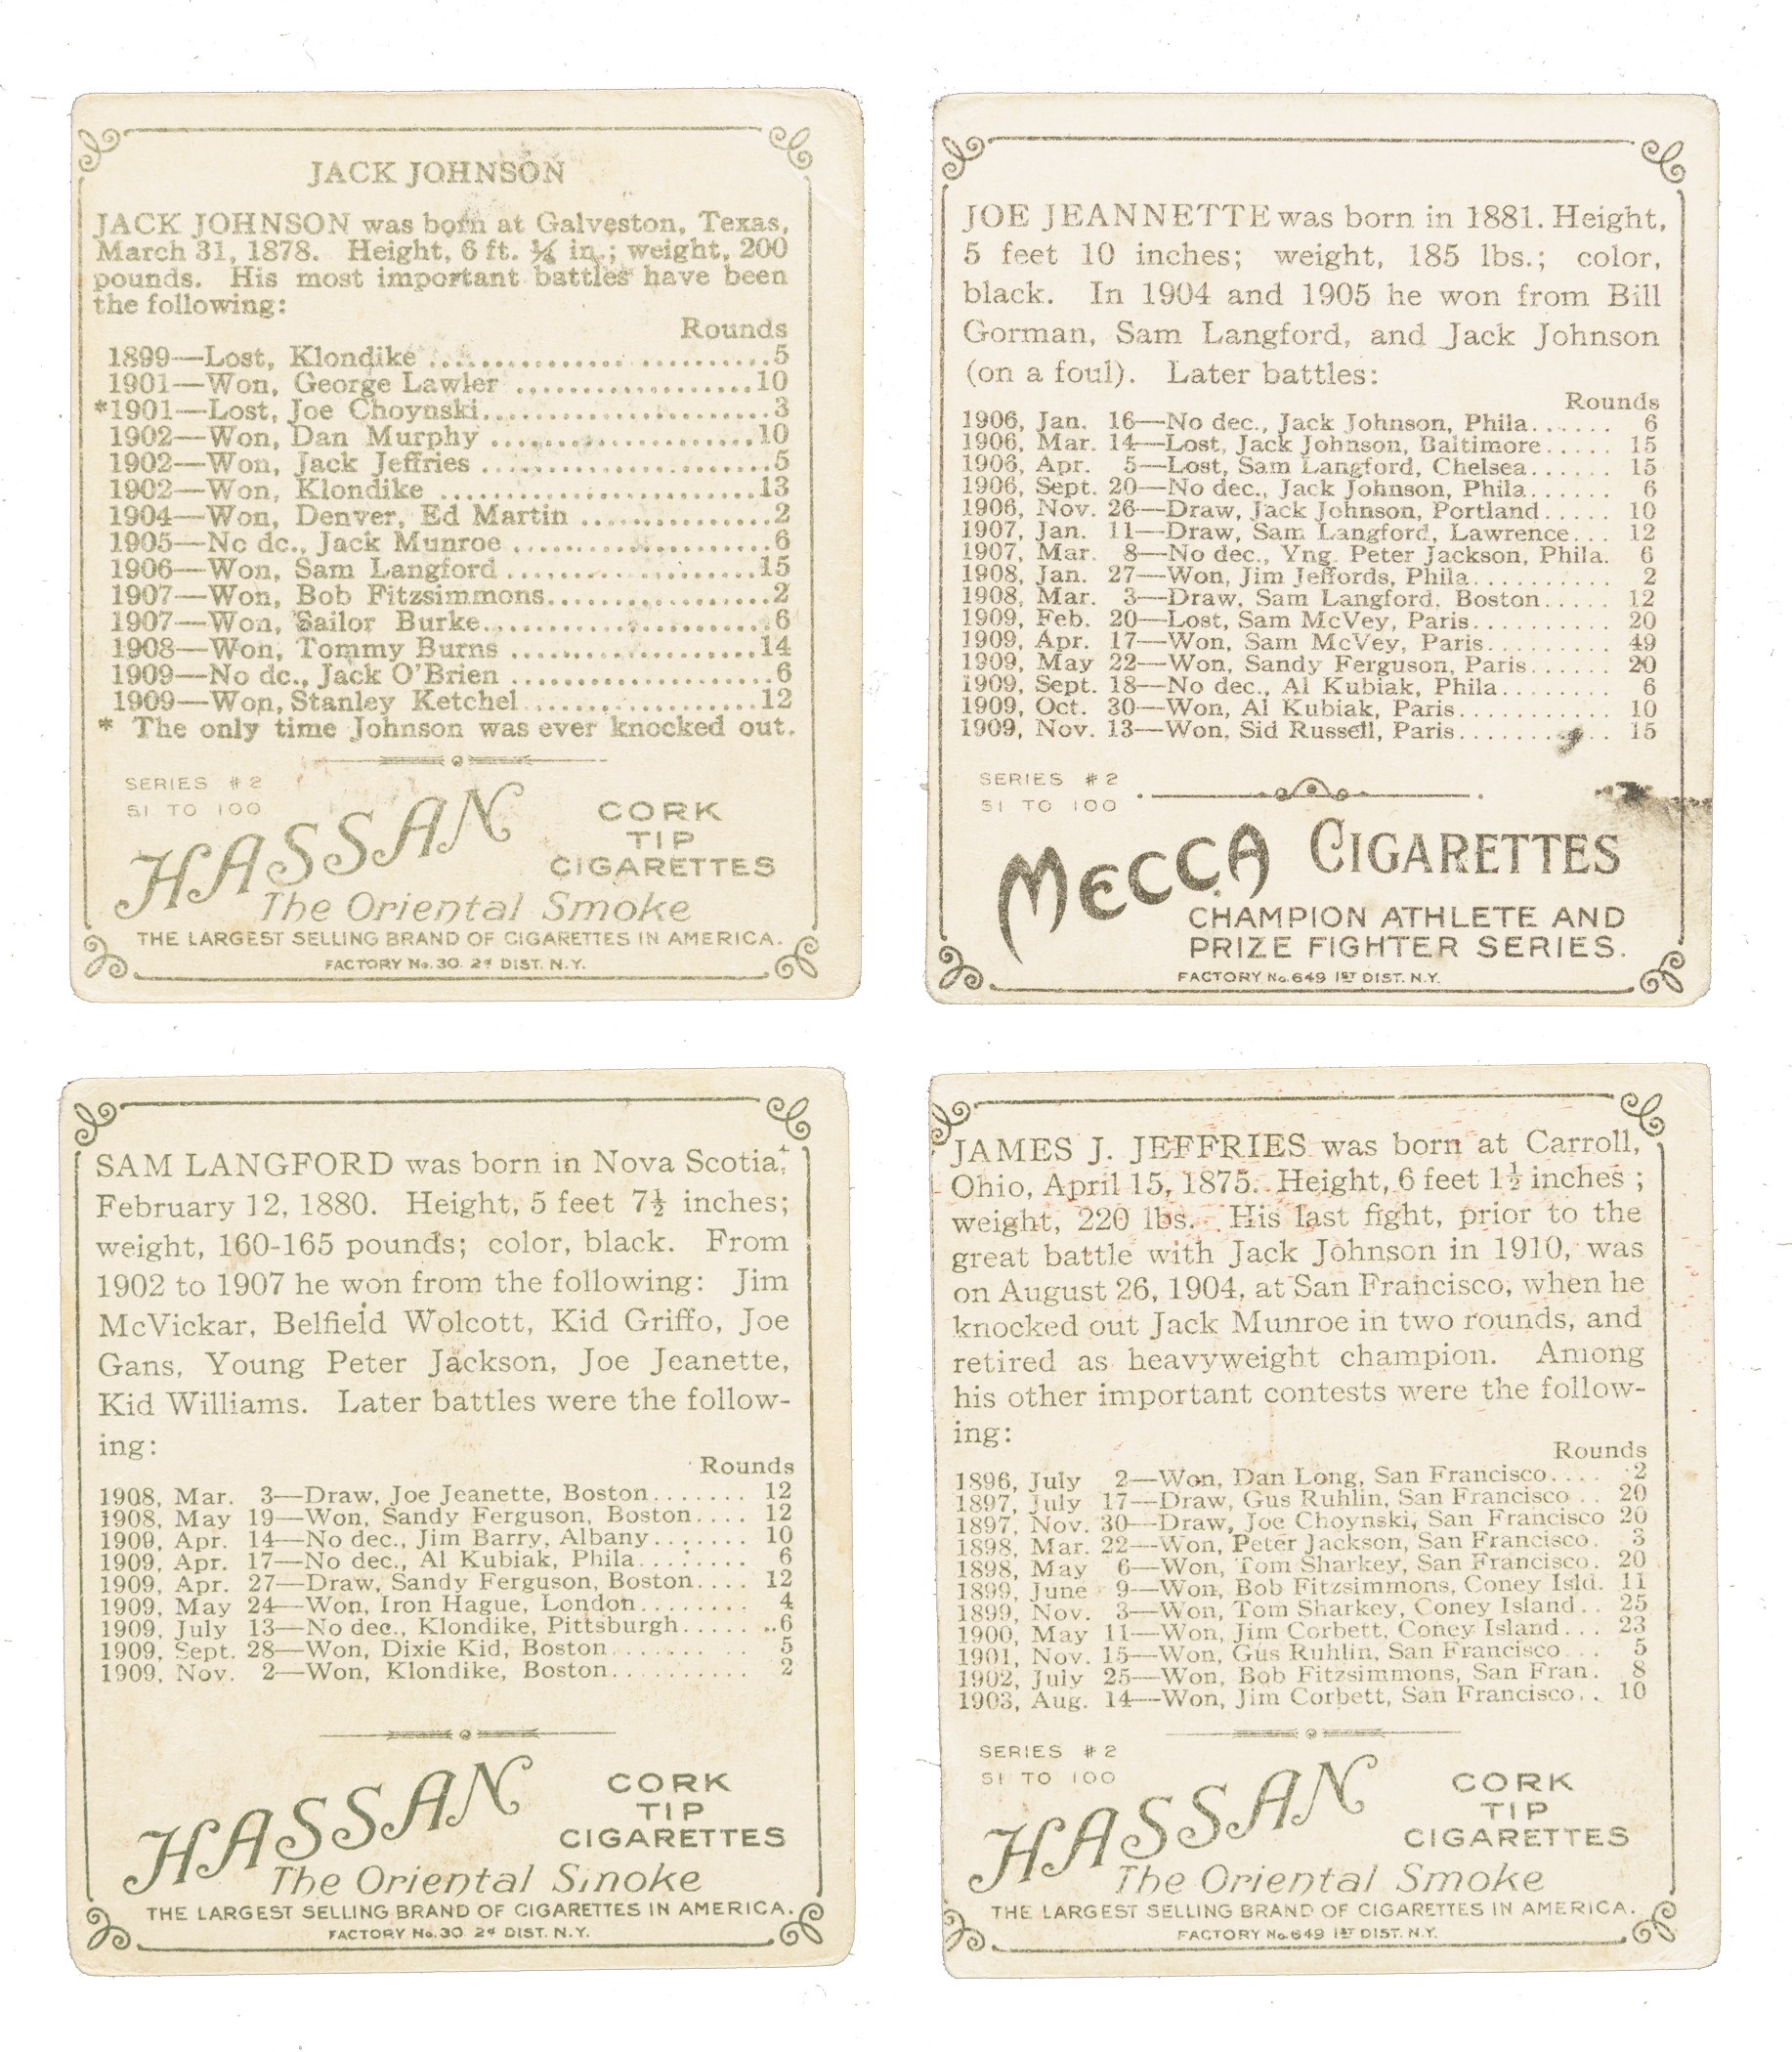 JACK JOHNSON
JACK JOHNSON was born at Galveston, Texas,
March 31, 1878. Height, 6 ft. ¼ in.; weight, 200
pounds. His most important battles have been
the following:
Rounds
1899—Lost, Klondike ..........................5
1901—Won, George Lawler ..................10
*1901—Lost, Joe Choynski......................3
1902—Won, Dan Murphy ....................10
1902—Won, Jack Jeffries ......................5
1902—Won, Klondike ........................13
1904—Won, Denver, Ed Martin ...............2
1905—No dc., Jack Munroe ....................6
1906—Won, Sam Langford ...................15
1907—Won, Bob Fitzsimmons.................2
1907—Won, Sailor Burke......................6
1908—Won, Tommy Burns ...................14
1909—No dc., Jack O'Brien ....................6
1909—Won, Stanley Ketchel..................12
* The only time Johnson was ever knocked out.
SERIES #2
51 TO 100
HASSAN
CORK
TIP
CIGARETTES
The Oriental Smoke
THE LARGEST SELLING BRAND OF CIGARETTES IN AMERICA.
FACTORY No. 30. 2d DIST. N.Y.
JOE JEANNETTE was born in 1881. Height,
5 feet 10 inches; weight, 185 lbs.; color,
black. In 1904 and 1905 he won from Bill
Gorman, Sam Langford, and Jack Johnson
(on a foul). Later battles:
Rounds
1906, Jan. 16—No dec., Jack Johnson, Phila...... 6
1906, Mar. 14—Lost, Jack Johnson, Baltimore..... 15
1906, Apr. 5—Lost, Sam Langford, Chelsea...... 15
1906, Sept. 20—No dec., Jack Johnson, Phila...... 6
1906, Nov. 26—Draw, Jack Johnson, Portland..... 10
1907, Jan. 11—Draw, Sam Langford, Lawrence... 12
1907, Mar. 8—No dec., Yng. Peter Jackson, Phila. 6
1908, Jan. 27—Won, Jim Jeffords, Phila.......... 2
1908, Mar. 3—Draw, Sam Langford, Boston..... 12
1909, Feb. 20—Lost, Sam McVey, Paris.......... 20
1909, Apr. 17—Won, Sam McVey, Paris.......... 49
1909, May 22—Won, Sandy Ferguson, Paris...... 20
1909, Sept. 18—No dec., Al Kubiak, Phila........ 6
1909, Oct. 30—Won, Al Kubiak, Paris........... 10
1909, Nov. 13—Won, Sid Russell, Paris.......... 15
SERIES #2
51 TO 100
MECCA CIGARETTES
CHAMPION ATHLETE AND
PRIZE FIGHTER SERIES.
FACTORY No. 649 1ST DIST. N.Y.
SAM LANGFORD was born in Nova Scotia,
February 12, 1880. Height, 5 feet 7½ inches;
weight, 160-165 pounds; color, black. From
1902 to 1907 he won from the following: Jim
McVickar, Belfield Wolcott, Kid Griffo, Joe
Gans, Young Peter Jackson, Joe Jeanette,
Kid Williams. Later battles were the follow-
ing:
Rounds
1908, Mar. 3—Draw, Joe Jeanette, Boston....... 12
1908, May 19—Won, Sandy Ferguson, Boston.... 12
1909, Apr. 14—No dec., Jim Barry, Albany....... 10
1909, Apr. 17—No dec., Al Kubiak, Phila........ 6
1909, Apr. 27—Draw, Sandy Ferguson, Boston.... 12
1909, May 24—Won, Iron Hague, London........ 4
1909, July 13—No dec., Klondike, Pittsburgh.......6
1909, Sept. 28—Won, Dixie Kid, Boston.......... 5
1909, Nov. 2—Won, Klondike, Boston.......... 2
HASSAN
CORK
TIP
CIGARETTES
The Oriental Smoke
THE LARGEST SELLING BRAND OF CIGARETTES IN AMERICA.
FACTORY No. 30. 2d DIST. N.Y.
JAMES J. JEFFRIES was born at Carroll,
Ohio, April 15, 1875. Height, 6 feet 1½ inches;
weight, 220 lbs. His last fight, prior to the
great battle with Jack Johnson in 1910, was
on August 26, 1904, at San Francisco, when he
knocked out Jack Munroe in two rounds, and
retired as heavyweight champion. Among
his other important contests were the follow-
ing:
Rounds
1896, July 2—Won, Dan Long, San Francisco.... 2
1897, July 17—Draw, Gus Ruhlin, San Francisco .. 20
1897, Nov. 30—Draw, Joe Choynski, San Francisco 20
1898, Mar. 22—Won, Peter Jackson, San Francisco. 3
1898, May 6—Won, Tom Sharkey, San Francisco. 20
1899, June 9—Won, Bob Fitzsimmons, Coney Isld. 11
1899, Nov. 3—Won, Tom Sharkey, Coney Island.. 25
1900, May 11—Won, Jim Corbett, Coney Island... 23
1901, Nov. 15—Won, Gus Ruhlin, San Francisco... 5
1902, July 25—Won, Bob Fitzsimmons, San Fran. 8
1903, Aug. 14—Won, Jim Corbett, San Francisco.. 10
SERIES #2
51 TO 100
HASSAN
CORK
TIP
CIGARETTES
The Oriental Smoke
THE LARGEST SELLING BRAND OF CIGARETTES IN AMERICA.
FACTORY No. 649 1ST DIST. N.Y.